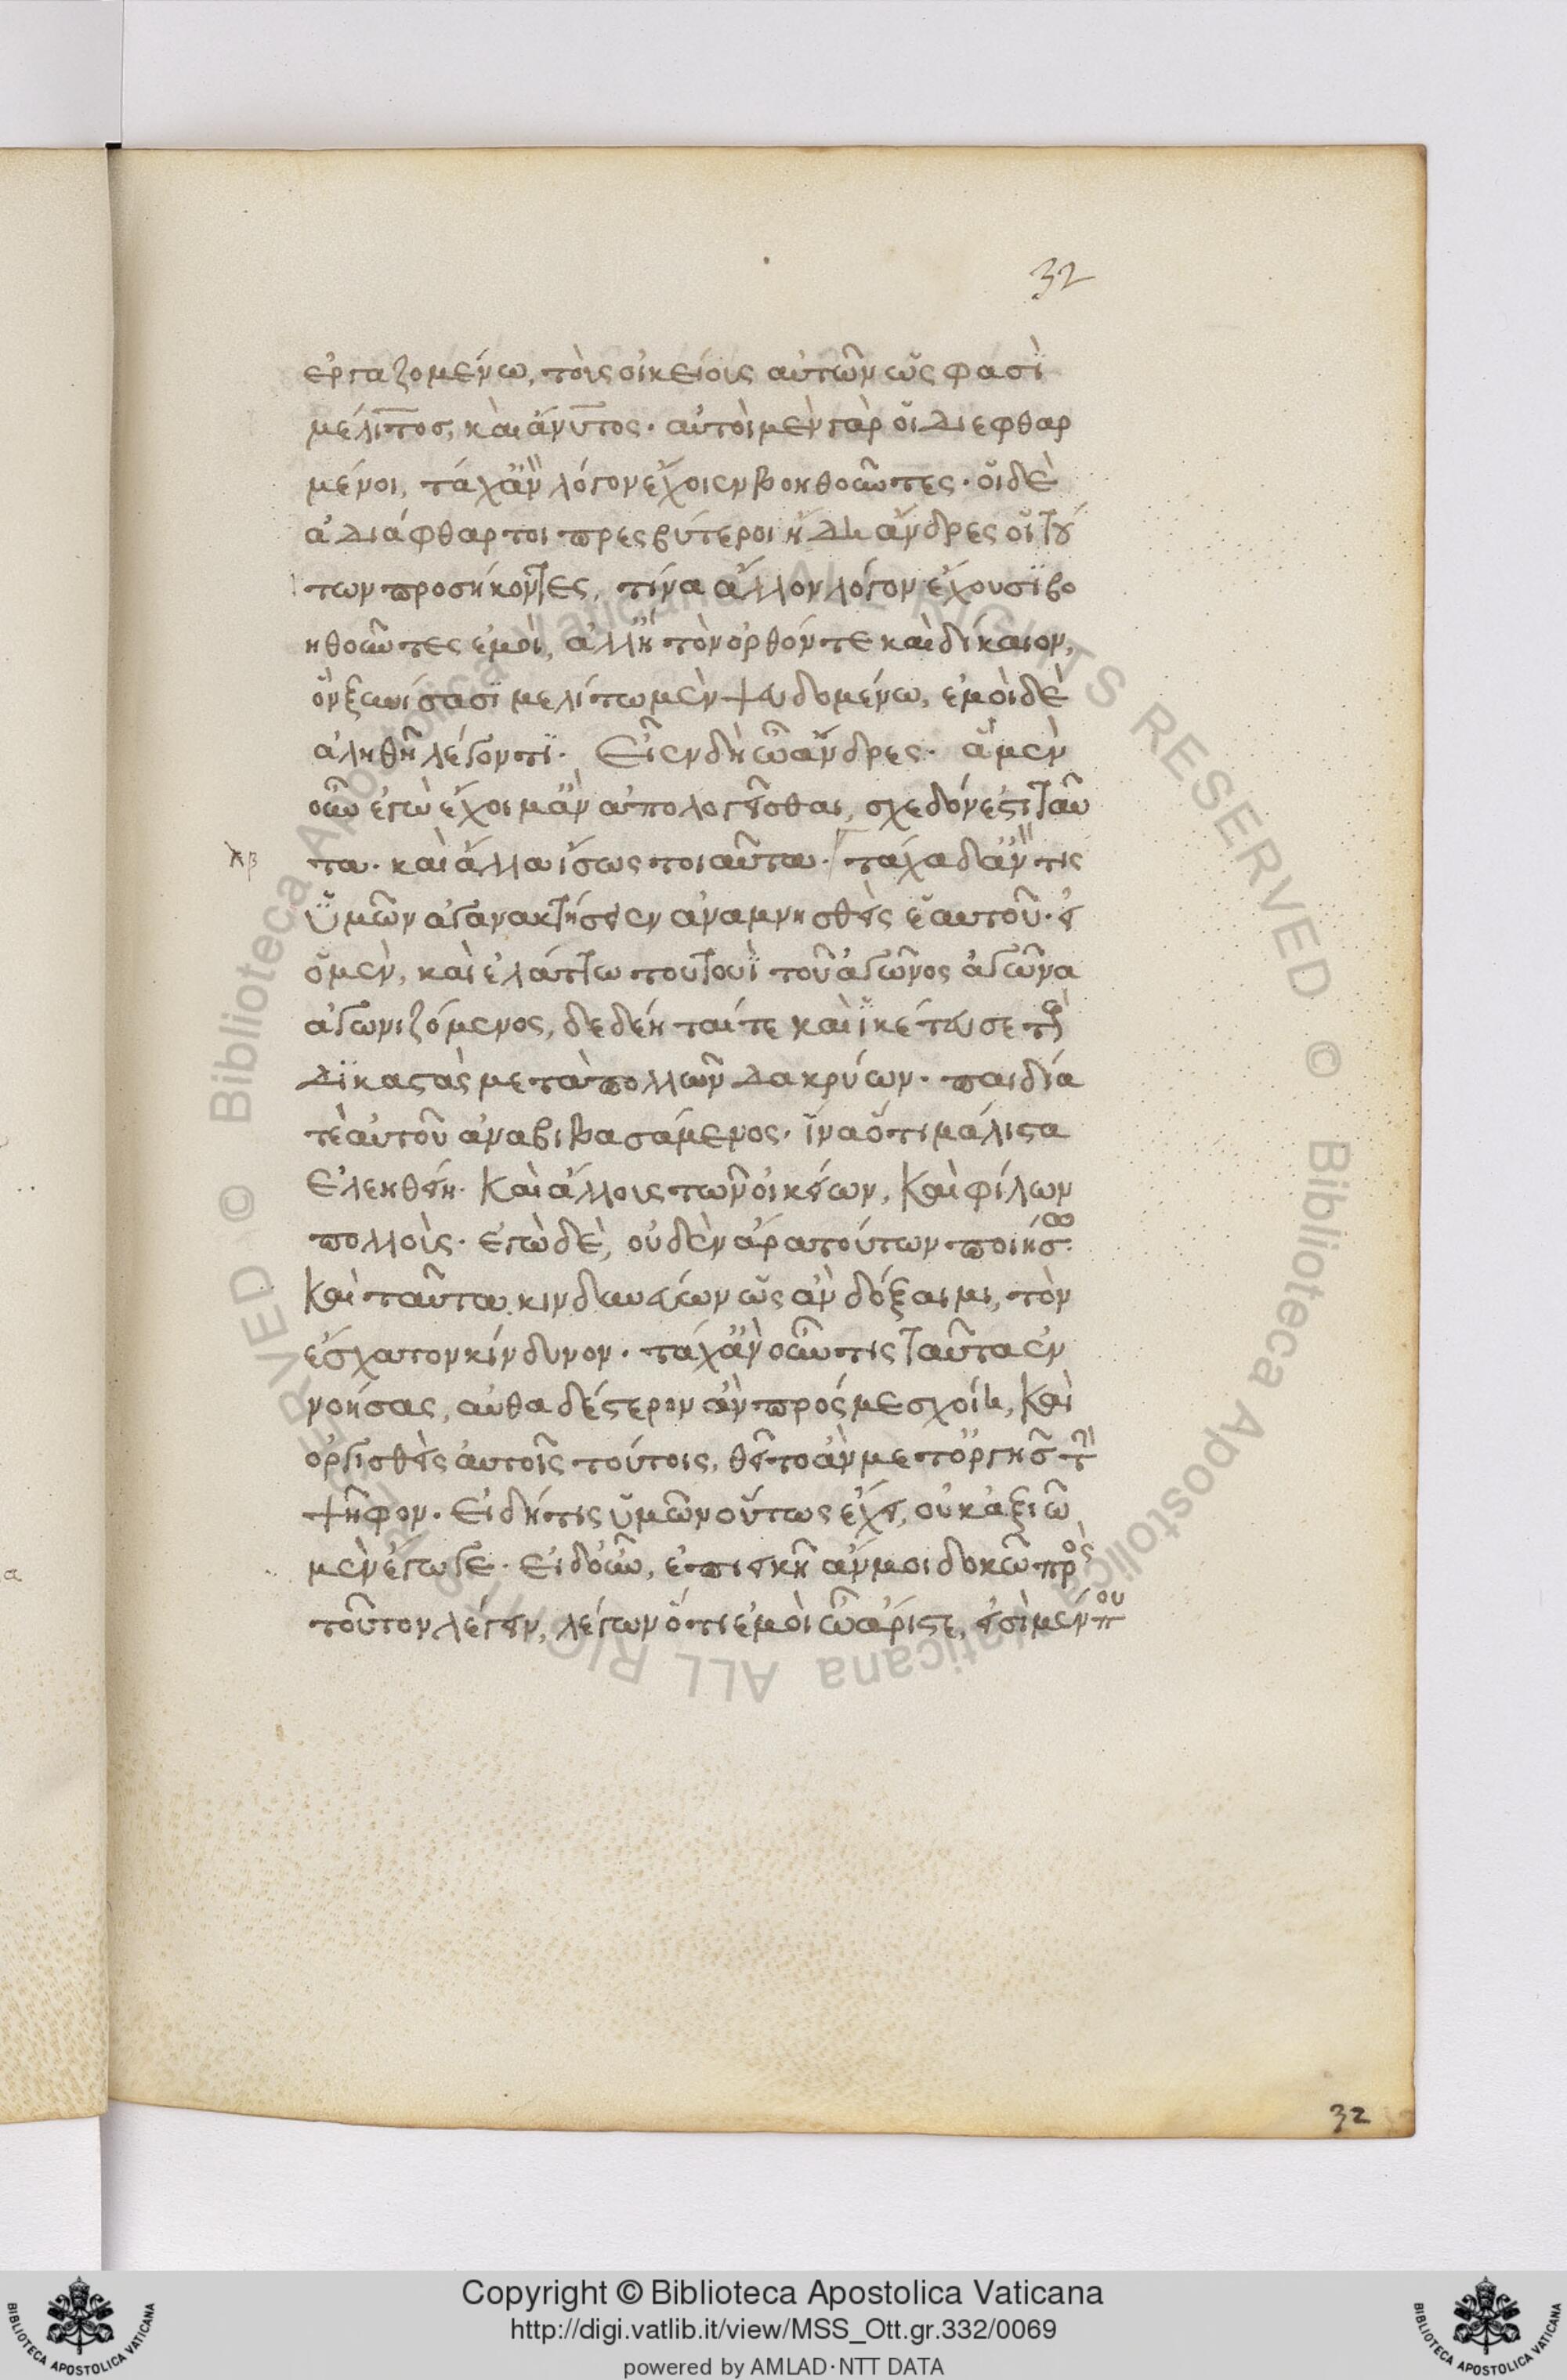 32
ἐργαζομένω, τοῖς οἰκείοις αὐτῶν ὥς φασὶ
μέλιτος, καὶ ἄνυτος. αὐτοὶ μὲν γὰρ οἱ διεφθαρ
μένοι, τάχἂν λόγον ἔχοιεν βοηθοῦντες. οἱ δὲ
ἀδιάφθαρτοι πρεσβύτεροι ἤδη ἄνδρες οἱ τού
των προσήκοντες, τίνα ἄλλον λόγον ἔχουσι βο
ηθοῦντες ἐμοὶ, ἀλλἢ τὸν ὀρθόν τε καὶ δίκαιον,
ὃν ξυνίσασι μελίτω μὲν ψευδομένω, ἐμοὶ δὲ
ἀληθῆ λέγοντι. Εἶεν δὴ ὦ ἄνδρες. ἃ μὲν
οὖν ἐγὼ ἔχοιμἂν ἀπολογεῖσθαι, σχεδόν ἐστι ταῦ
τα. καὶ ἄλλα ἴσως τοιαῦτα. τάχα δἄν τις
ὑμῶν ἀγανακτήσειεν ἀναμνησθεὶς ἑαυτοῦ. εἰ
ὁ μὲν, καὶ ἐλάττω τουτουῒ τοῦ ἀγῶνος ἀγῶνα
ἀγωνιζόμενος, δεδέηταί τε καὶ ἱκέτευσε τοὺς
δικαστὰς μετὰ πολλῶν δακρύων. παιδία
τὲ αὑτοῦ ἀναβιβασάμενος. ἵνα ὅτι μάλιστα
ἐλεηθείη. καὶ ἄλλους τῶν οἰκείων, καὶ φίλων
πολλοὺς. ἐγὼ δὲ, οὐδὲν ἄρα τούτων ποιήσω.
καὶ ταῦτα κινδυνεύων ὡς ἂν δόξαιμι, τὸν
ἔσχατον κίνδυνον. τάχἂν οὖν τις ταῦτα ἐν
νοήσας, αὐθαδέστερον ἂν πρός με σχοίη, καὶ
ὀργισθεὶς αὐτοῖς τούτοις, θεῖτο ἂν μετ ὀργῆς τὴν
ψῆφον. εἰ δή τις ὑμῶν οὕτως ἔχει, οὐκ ἀξιῶ
μὲν ἔγωγε. εἰ δ οὖν, ἐπιεικῆ ἄν μοι δοκῶ πρὸς
τοῦτον λέγειν, λέγων ὅτι ἐμοὶ ὦ ἄριστε, εἰσὶ μέν που
32
Copyright © Biblioteca Apostolica Vaticana
http://digi.vatlib.it/view/MSS_Ott.gr.332/0069
powered by AMLAD·NTT DATA